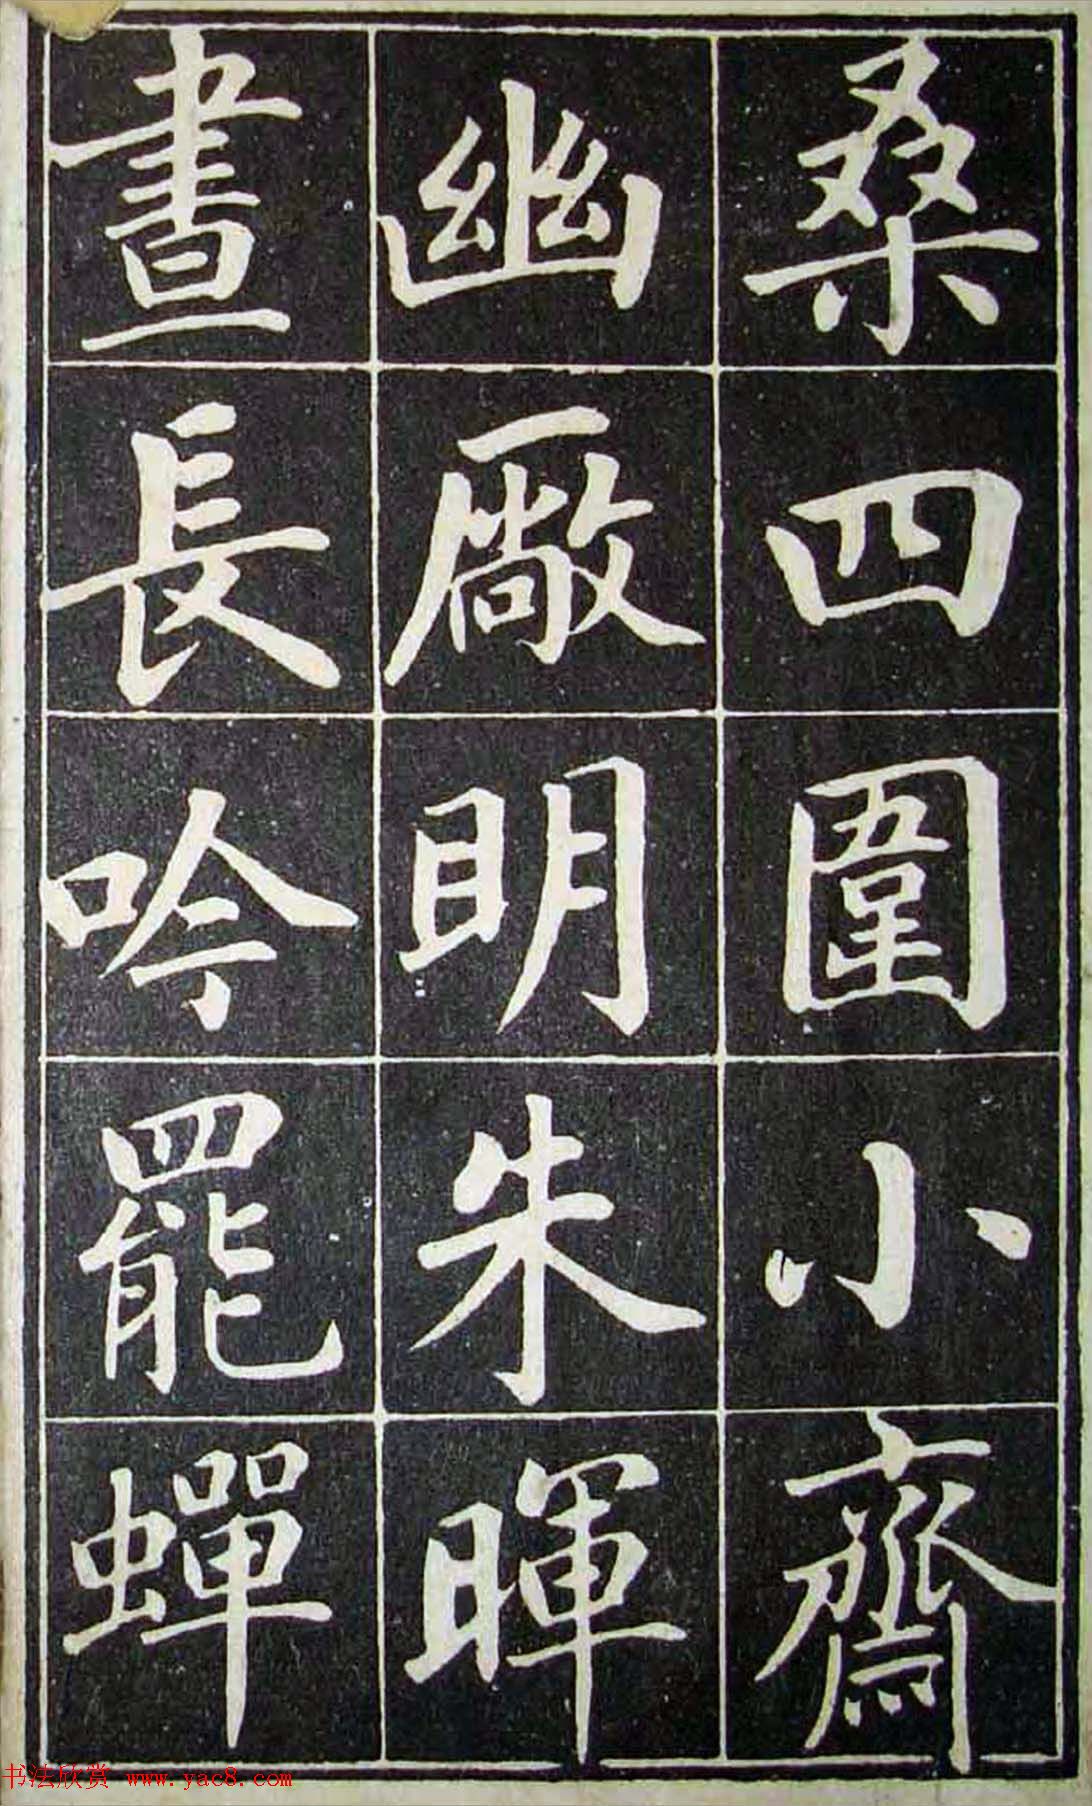 桑四圍小齋
幽厰明朱暉
晝長吟罷蟬
书法欣赏 www.yac8.com